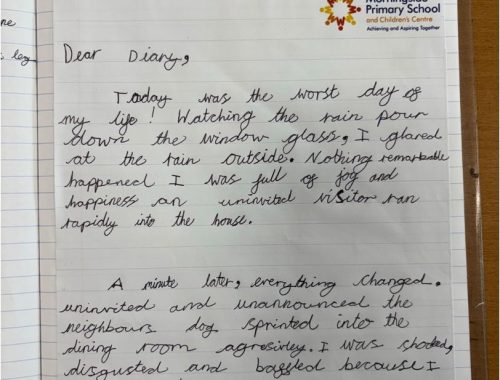 Morningside
Primary School
and Children's Centre
Achieving and Aspiring Together
ne
leg
Dear Diary,
Today was the worst day of
my life! Watching the rain pour
down the window glass, I glared
at the rain outside. Nothing remarkable
happened I was full of joy and
happiness an uninvited visitor ran
rapidly into the house.
A minute later, everything changed.
uninvited and unannounced the
neighbours dog sprinted into the
dining room agresivley. I was shocked,
disgusted and baffled because I